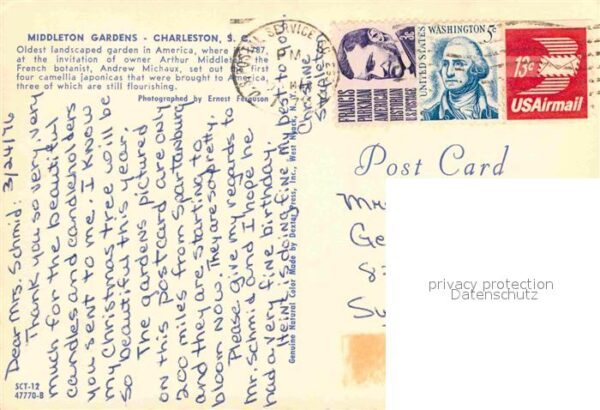 MIDDLETON GARDENS - CHARLESTON, S. C.
Oldest landscaped garden in America, where in 1787,
at the invitation of owner Arthur Middleton, the
French botanist, Andrew Michaux, set out the first
four camellia japonicas that were brought to America,
three of which are still flourishing.
Photographed by Ernest Ferguson
Dear Mrs. Schmid: 3/24/76
Thank you so very, very
much for the beautiful
candles and candleholders
you sent to me. I know
my Christmas tree will be
so beautiful this year.
The gardens pictured
on this postcard are only
200 miles from Spartanburg
and they are starting to
bloom now. They are so pretty.
Please give my regards to
Mr. Schmid and I hope he
had a very fine birthday.
Hein is doing fine. My best to you
Christine
Stapleton
SCT-12
47770-B
Genuine Natural Color Made by Dexter Press, Inc., West Nyack, N.Y.
U.S. POSTAL SERVICE
PM
FRANCIS
PARKMAN
AMERICAN
HISTORIAN
3¢ U.S. POSTAGE
UNITED STATES
WASHINGTON 5c
13c
USAirmail
Post Card
privacy protection
Datenschutz